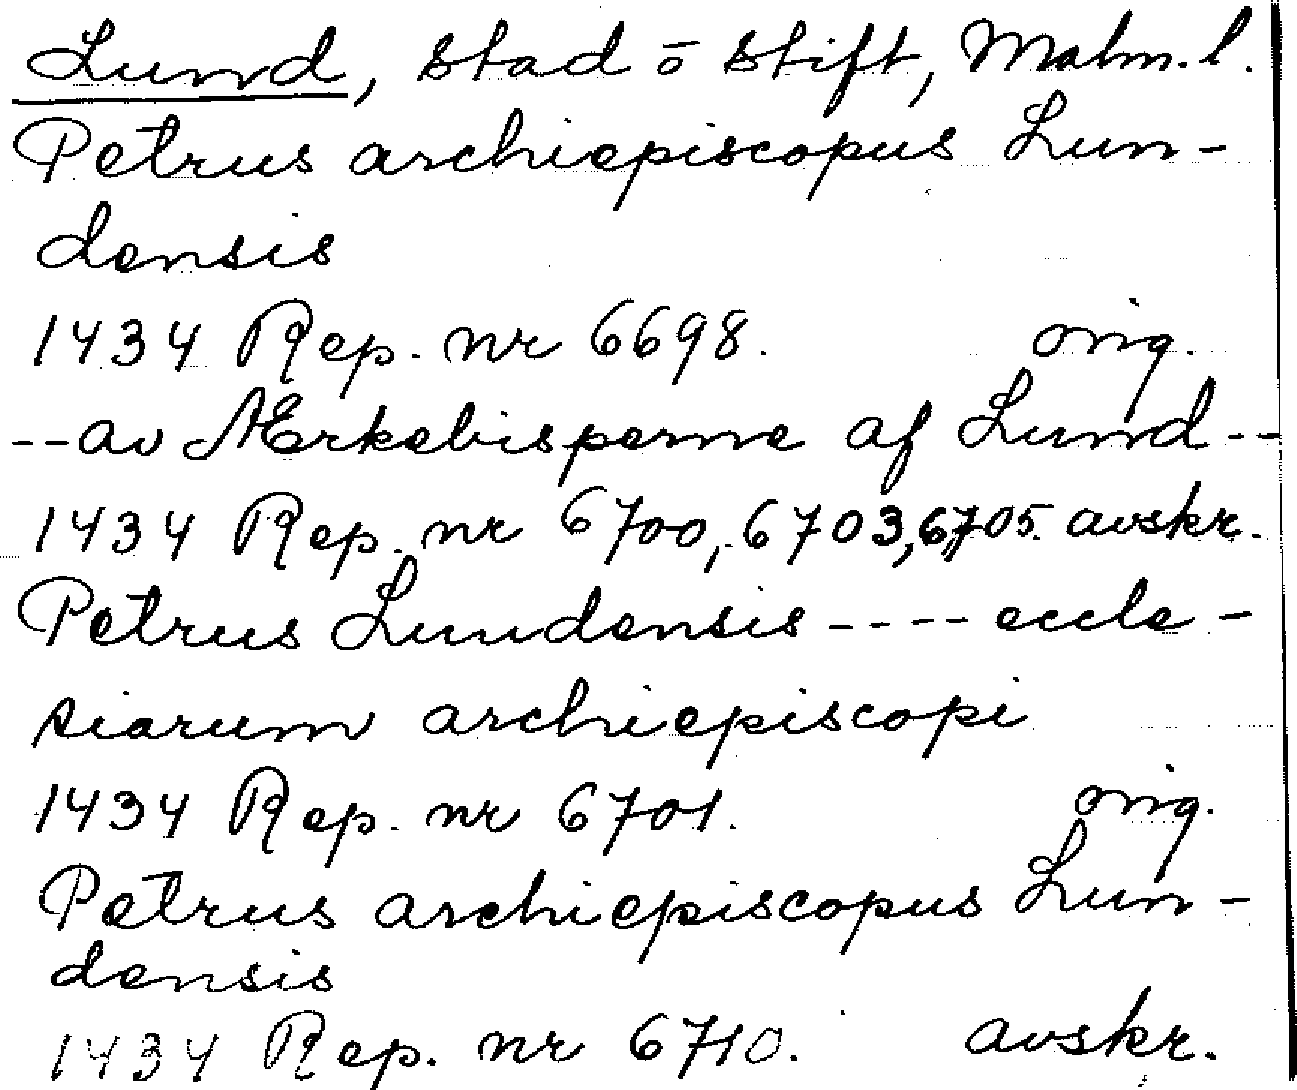 Lund, stad o stift, Malm.l.
Petrus archiepiscopus Lun-
densis
1434 Rep. nr 6698. orig.
--av Ærkebisperne af Lund--
1434 Rep. nr 6700, 6703, 6705. avskr.
Petrus Lundensis ---- eccle-
siarum archiepiscopi
1434 Rep. nr 6701. orig.
Petrus archiepiscopus Lun-
densis
1434 Rep. nr 6710. avskr.